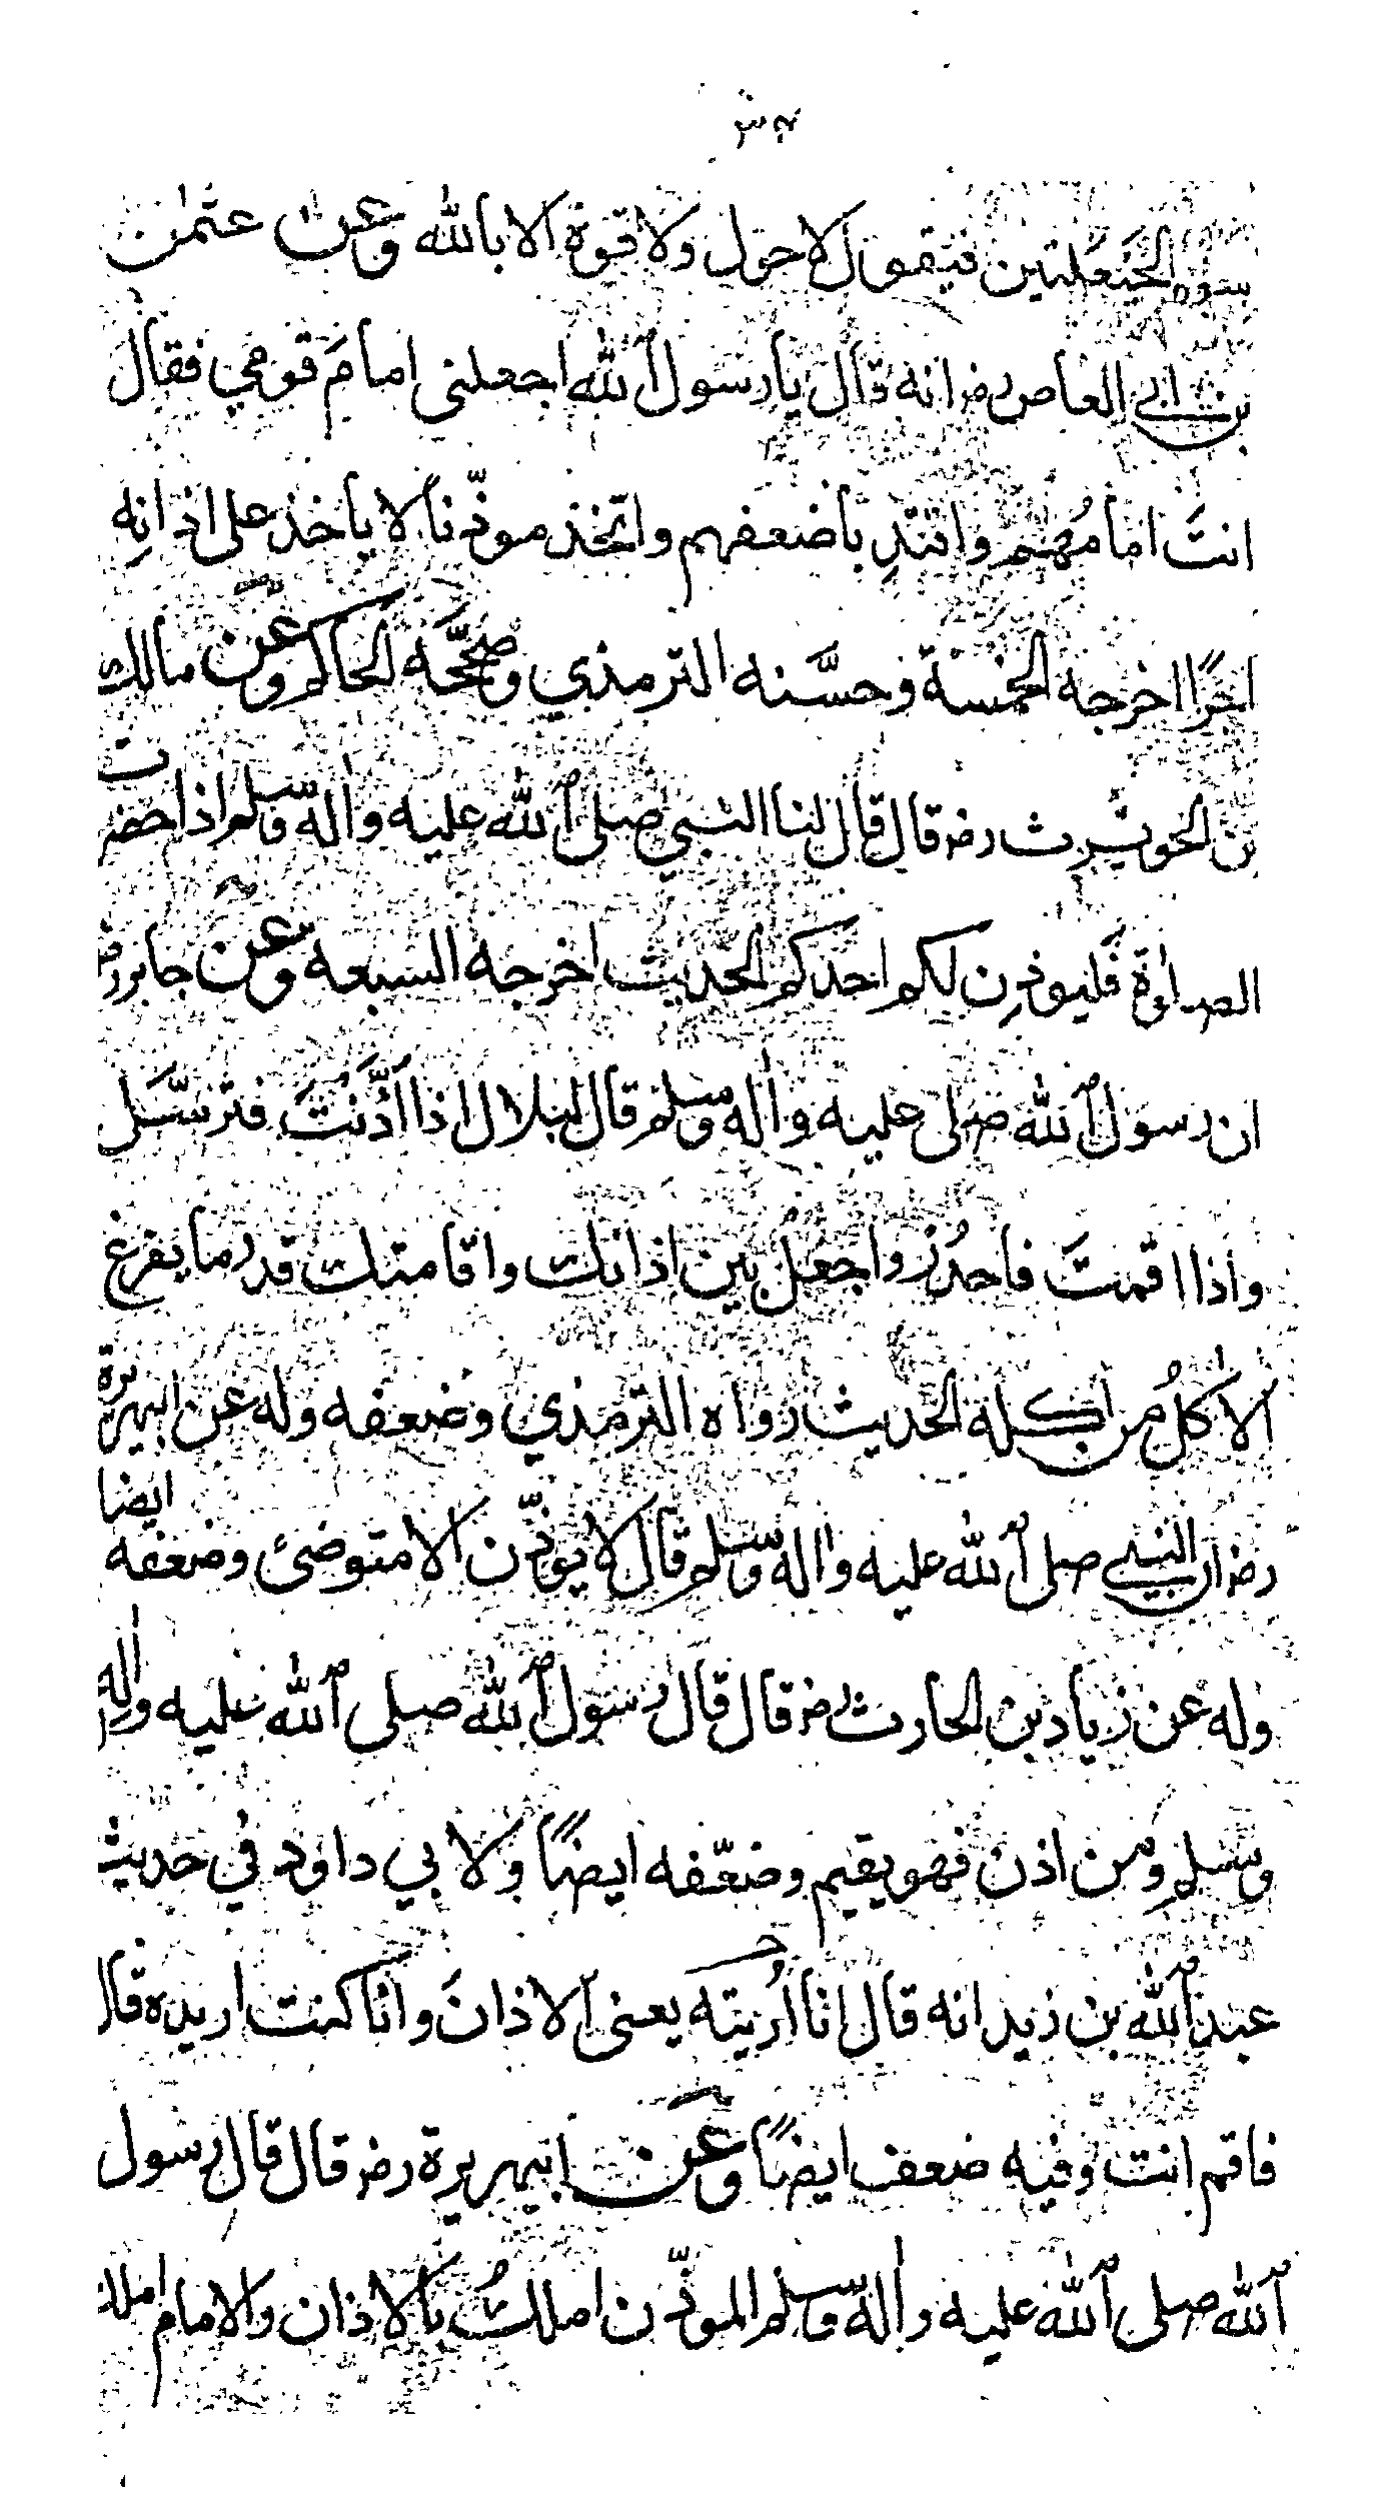 ٣٤
سوى الحَيْعَلتين فيقول لا حول ولا قوة الا بالله وعن عثمٰن
بن ابي العاص رضـ انه قال يا رسول الله اجعلني امامَ قومي فقال
انتَ امامُهُم واقتدِ باضعفهم واتّخذ موذّنا لا ياخذ على اذانِهِ
اجرًا اخرجه الخمسة وحسَّنه الترمذي وصححَّه الحاكم وعن مالك
بن الحويرث رضـ قال قال لنا النبي صلى الله عليه واله وسلم اذا حضرت
الصلوة فليوذن لكم احدكم الحديث اخرجه السبعه وعن جابر رضـ
ان رسول الله صلى عليه واله وسلم قال لبلال اذا أذَّنتَ فترسَّل
واذا اقمتَ فاحدُر واجعلْ بين اذانك واقامتك قدر ما يفرغ
الاكلُ من اكله الحديث رواه الترمذي وضعفه وله عن ابيهريرة
رضـ ان النبي صلى الله عليه واله وسلم قال لا يوذّن الا متوضئ وضعفه ايضا
وله عن زياد بن الحارث رضـ قال قال رسول الله صلى الله عليه واله
وسلم ومن اذن فهو يقيم وضعّفه ايضًا ولابي داود في حديث
عبد الله بن زيد انه قال انا اُريته يعنى الاذانَ وانا كنت اريده قال
فاقم انت وفيه ضعف ايضًا وعن ابيهريرة رضـ قال قال رسول
الله صلى الله عليه واله وسلم الموذّن املكُ بالاذان والامام املك